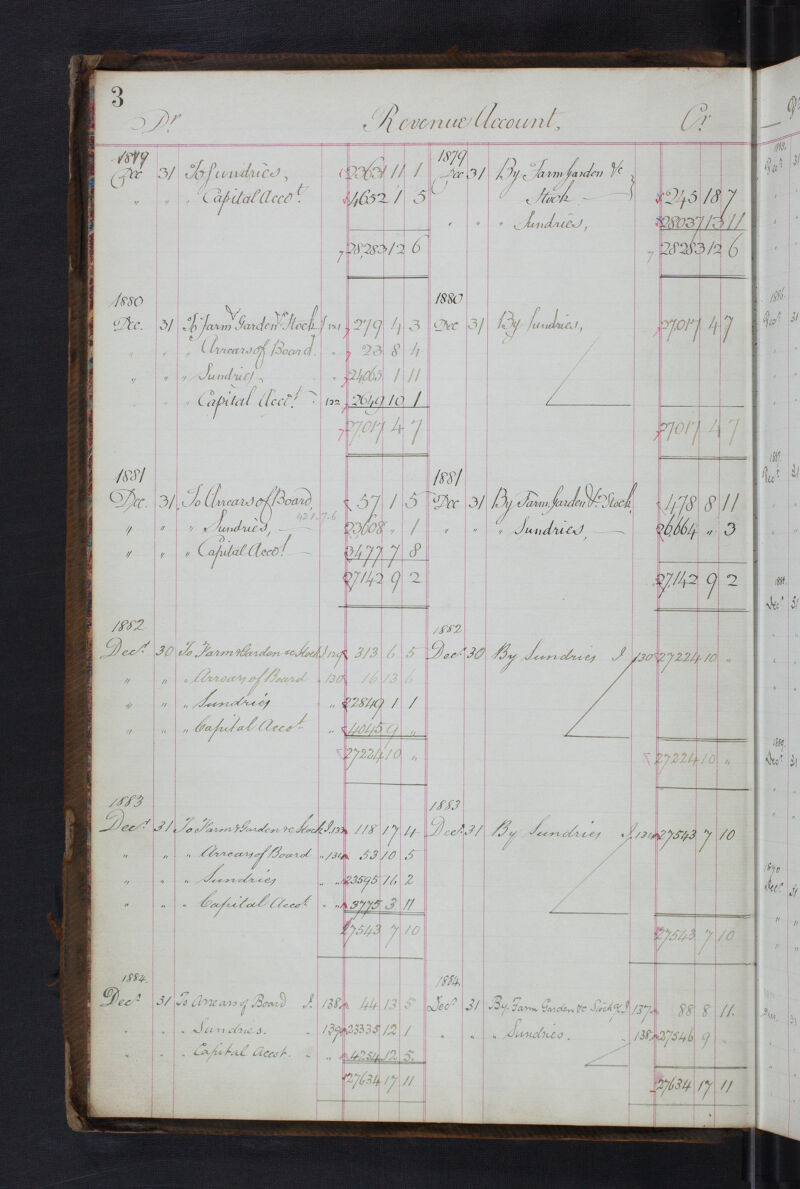 3
Dr. Revenue Account, Cr.
1879 1879
Dec 31 To Sundries, 23631 11 1 Dec 31 By Farm Garden &c
" " " Capital Acco.t 4652 1 5 Stock 245 18 7
" " " Sundries, 28037 13 11
28,283 12 6 28283 12 6
1880 1880
Dec. 31 To Farm Garden &c Stock J 121 279 4 3 Dec 31 By Sundries, 27017 4 7
" " " Arrears of Board. " 23 8 4
" " " Sundries " 24065 1 11
" " " Capital Acco.t 122 2649 10 1
27,017 4 7 27017 4 7
1881 1881
Dec. 31 To Arrears of Board, 57 1 5 Dec 31 By Farm, Garden &c. Stock 478 8 11
" " " Sundries, 23608 " 1 " " " Sundries, 26,664 " 3
" " " Capital Acco.t 3477 7 8
27142 9 2 27,142 9 2
1882 1882
Dec.r 30 To Farm & Garden &c Stock J 129 313 6 5 Dec.r 30 By Sundries J 130 27224 10 "
" " " Arrears of Board " 130 16 13 6
" " " Sundries " " 22849 1 1
" " " Capital Acco.t " " 4045 9 "
27224 10 " 27224 10 "
1883 1883
Dec.r 31 To Farm & Garden &c Stock J. 133 118 17 4 Dec.r 31 By Sundries J. 131 27543 7 10
" " " Arrears of Board " 134 53 10 5
" " " Sundries " " 23595 16 2
" " " Capital Acco.t " " 3775 3 11
27543 7 10 27543 7 10
1884. 1884.
Dec.r 31 To Arrears of Board J. 138 44 13 5 Dec.r 31 By Farm Garden &c Stock J 137 88 8 11.
" " " Sundries. " 139 23335 12 1 " " " Sundries. " 138 27546 9 "
" " " Capital Accot. " " 4254 12 5.
27634 17 11 27634 17 11